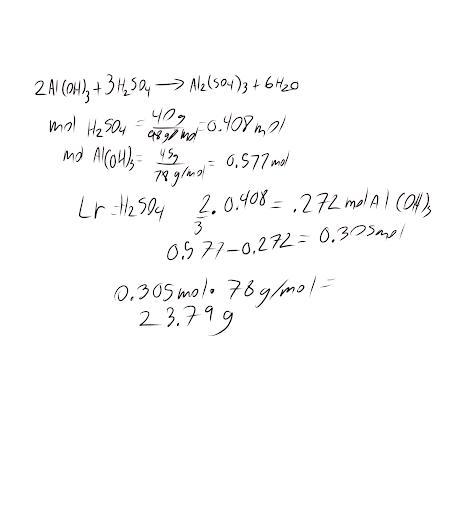 2Al(OH)₃ + 3H₂SO₄ → Al₂(SO4)₃ + 6H₂O
mol H₂SO₄ = 40g/98g/mol = 0.408 mol
mol Al(OH)₃ = 45g/78 g/mol = 0.577 mol
Lr = H₂SO4 2/3 · 0.408 = .272 mol Al(OH)₃
0.577 - 0.272 = 0.305 mol
0.305 mol · 78 g/mol =
23.79 g